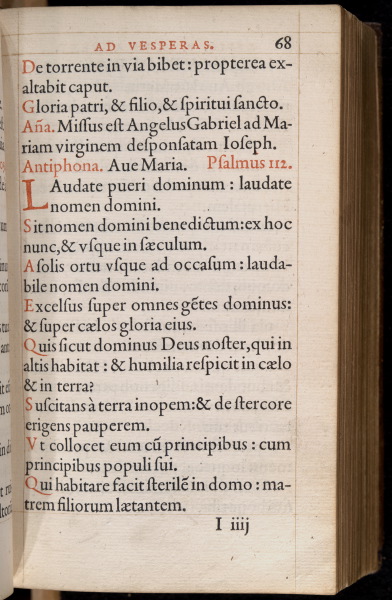 AD VESPERAS. 68
De torrente in via bibet: propterea ex-
altabit caput.
Gloria patri, & filio, & spiritui sancto.
Aña. Missus est Angelus Gabriel ad Ma-
riam virginem desponsatam Ioseph.
Antiphona. Aue Maria. Psalmus 112.
LAudate pueri dominum: laudate
nomen domini.
Sit nomen domini benedictum: ex hoc
nunc, & vsque in sæculum.
A solis ortu vsque ad occasum: lauda-
bile nomen domini.
Excelsus super omnes gētes dominus:
& super cælos gloria eius.
Quis sicut dominus Deus noster, qui in
altis habitat: & humilia respicit in cælo
& in terra?
Suscitans à terra inopem: & de stercore
erigens pauperem.
Vt collocet eum cū principibus: cum
principibus populi sui.
Qui habitare facit sterilē in domo: ma-
trem filiorum lætantem.
I iiij